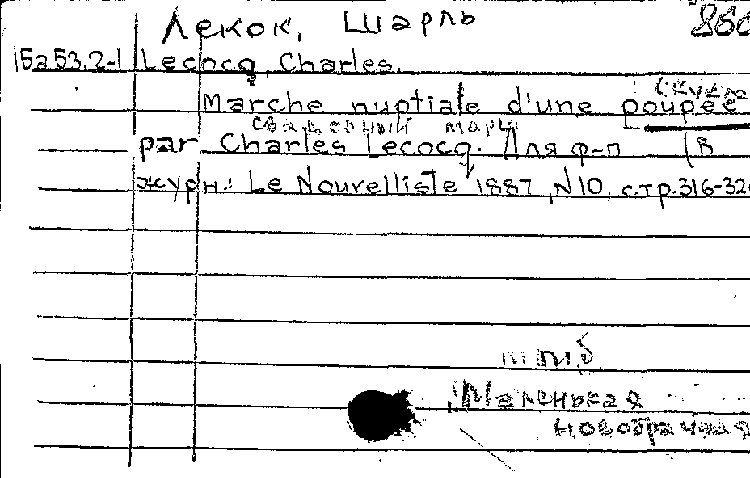 Лекок, Шарль
15a53.2-1 Lecocq, Charles.
Marche nuptiale d'une poupée
свадебный марш
par Charles Lecocq. Для ф-п (В
журн.: Le Nouvelliste 1887, N10, стр. 316-32
Маленькая
новобрачная